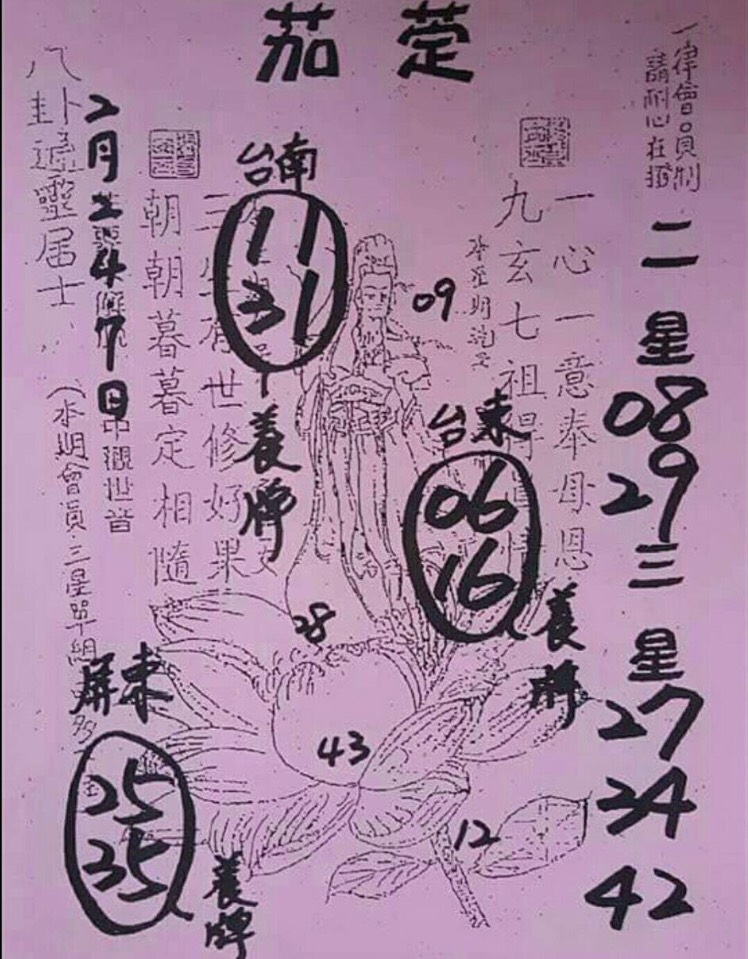 茄萣
一律會員制
請耐心在撥
二星
08
29
三星
27
34
42
一心一意奉母恩
九玄七祖得
09
台東
06
16
養牌
台南
11
31
養牌
世修好果
朝朝暮暮定相隨
28
43
12
2月24 7日
中觀世音
八卦通靈居士
(本期會員三星單組
屏東
25
35
養牌